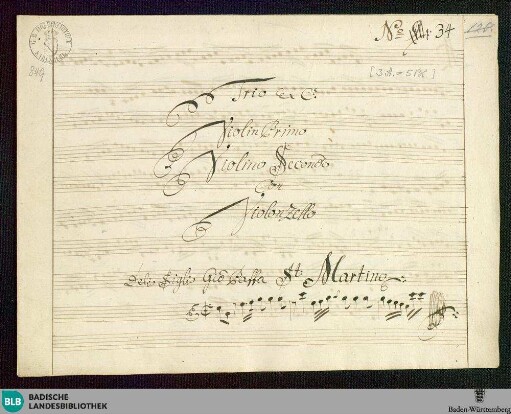 No 34
[3 St. = 5 Bl.]
Trio Ex C.
Violin Primo
Violino Secondo
Con
Violonzello
Delle Sigle Gio Batta St. Martino
BLB BADISCHE
LANDESBIBLIOTHEK
Baden-Württemberg